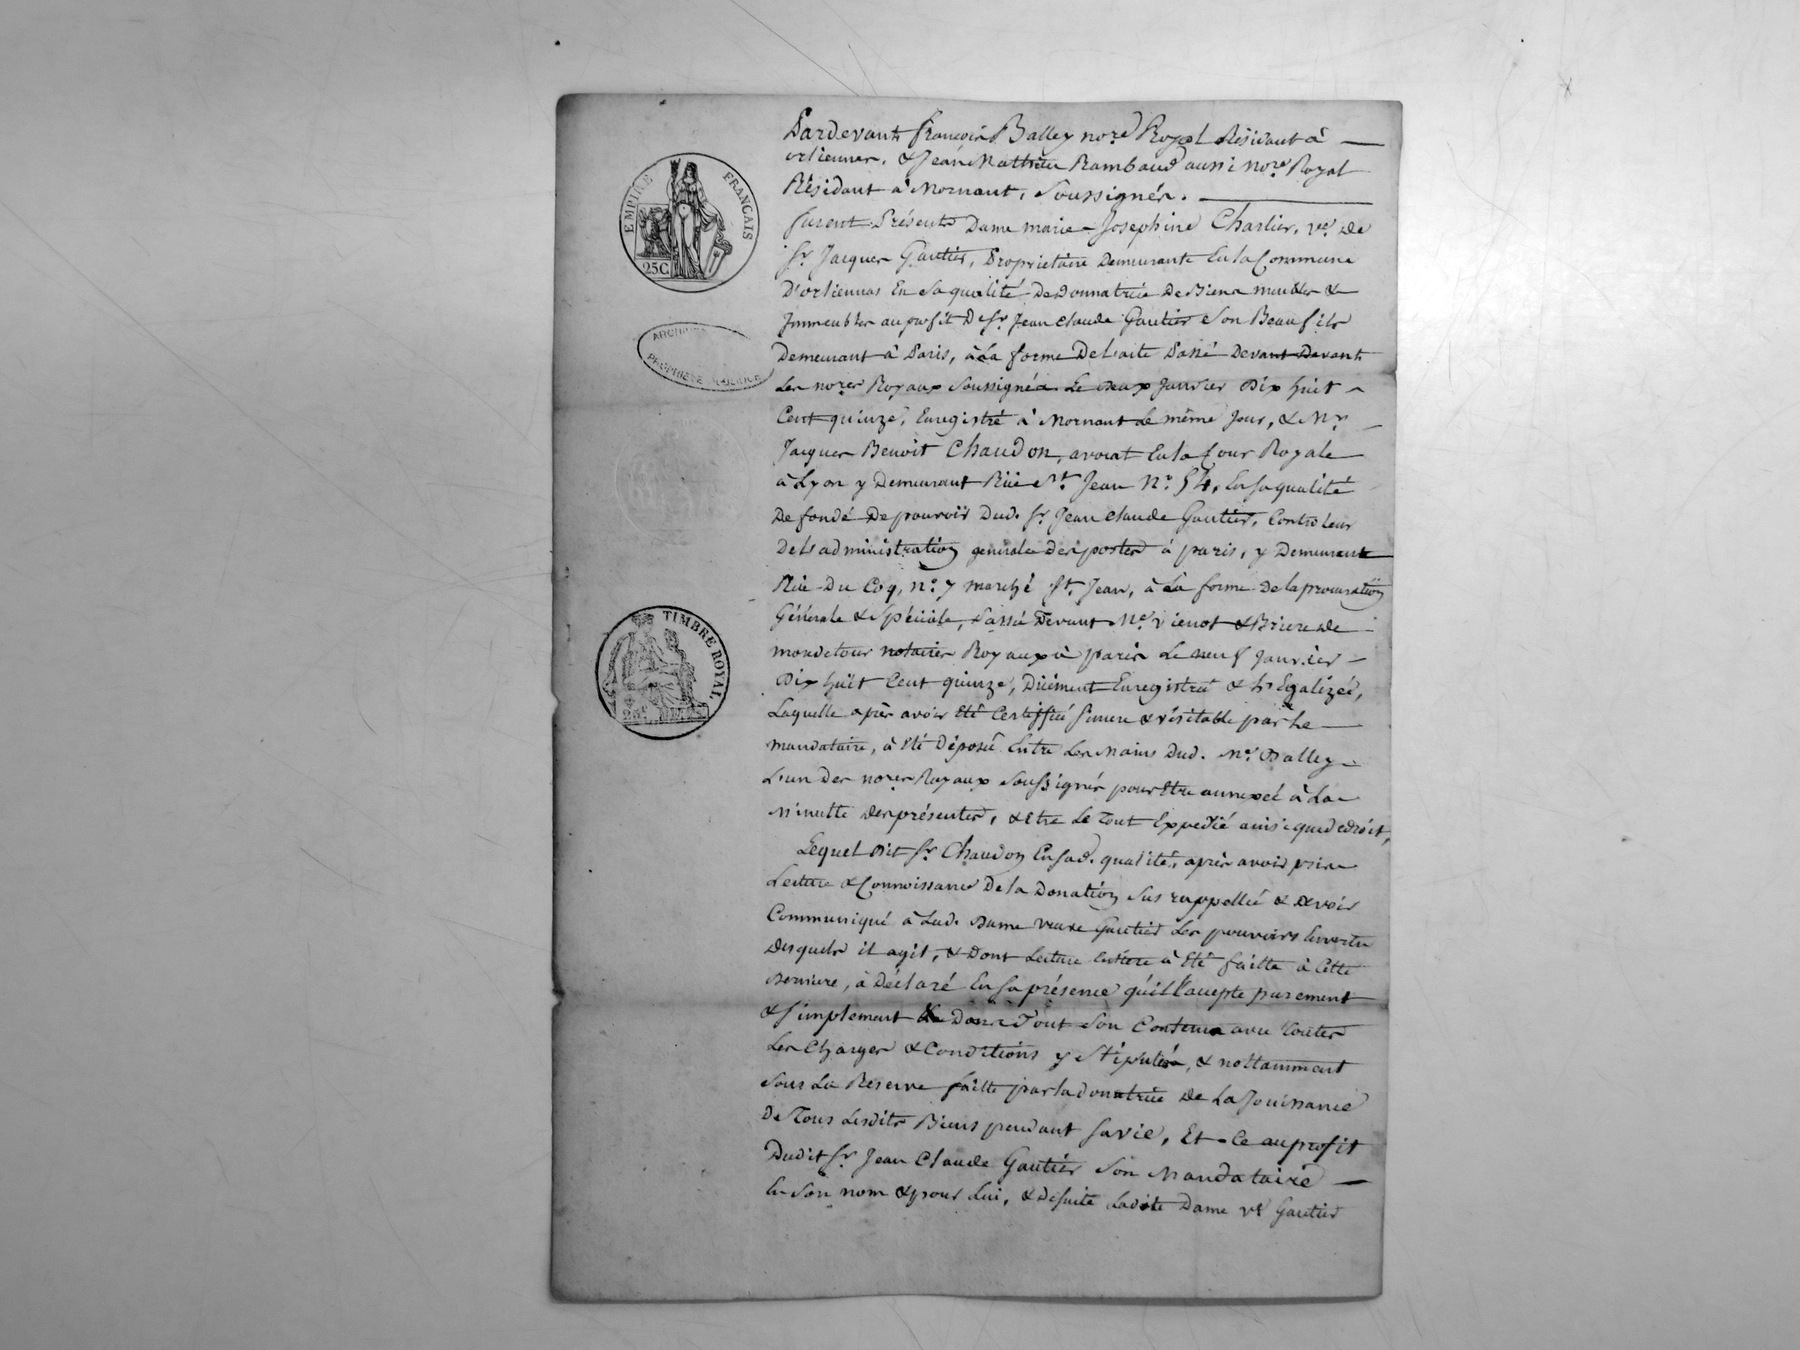 EMPIRE FRANÇAIS
25C
ARCHIVES
PROPRIÉTÉ PUBLIQUE
TIMBRE ROYAL
25c
Pardevant françois Balley no.re Royal Résidant à
orliennas, & Jean Matthieu Rambaud aussi No.re Royal
Résidant à Mornant, Soussignés.
furent Présents Dame marie-Josephine Charlier, ve. de
Sr. Jacques Gautier, Proprietaire Demeurante En la Commune
D'orliennas En Sa qualité De Donnatrice De Biens meubles &
Immeubles au profit De Sr. Jean claude Gautier Son Beau fils
Demeurant à Paris, à La forme De L'acte Passé Devant Devant
Les no.res Royaux Soussignés Le deux Janvier Dix huit
Cent quinze, Enregistré à Mornant Le même Jour, & Mr.
Jacques Benoit Chaudon, avocat En la Cour Royale
à Lyon y Demeurant Rüe St. Jean N.o 54, En Sa qualité
De fondé De pouvoir Dud. Sr. Jean claude Gautier, Controleur
De L'administration generale des postes à paris, y Demeurant
Rüe Du Coq, N.o 7 marché St. Jean, à La forme De la procuration
Générale & Spéciale, Passée Devant Me. Vienot & Briere de
mondetour notaires Royaux à paris Le neuf Janvier
Dix huit Cent quinze, Dûement Enregistrée & Légalizée,
Laquelle après avoir Eté Certiffiée Sincere & véritable par Le
mandataire, à Eté Déposée Entre Les Mains Dud. Me. Balley
L'un Des no.res Royaux Soussignés pour Etre annexée à La
Minutte des présentes, & Etre Le Tout Expedié ainsi que de droit,
Lequel Dit Sr. Chaudon En Sad. qualité, après avoir prise
Lecture & Connoissance De la Donation Sus rappellée & avoir
Communiqué à Lad. Dame veuve Gautier Les pouvoirs En vertu
Desquels il agit, & Dont Lecture Entiere à Eté faitte à Cette
Derniere, à Déclaré En Sa présence qu'il l'accepte purement
& Simplement Dans Tout Son Contenu avec Toutes
Les Charges & Conditions y Stipulées, & nottamment
Sous La Reserve faitte par la donatrice De La Jouissance
De Tous Lesdits Biens pendant Sa vie, Et Ce au profit
Dudit Sr. Jean Claude Gautier Son Mandataire
En Son nom & pour Lui, & De Suite Ladite Dame ve Gautier